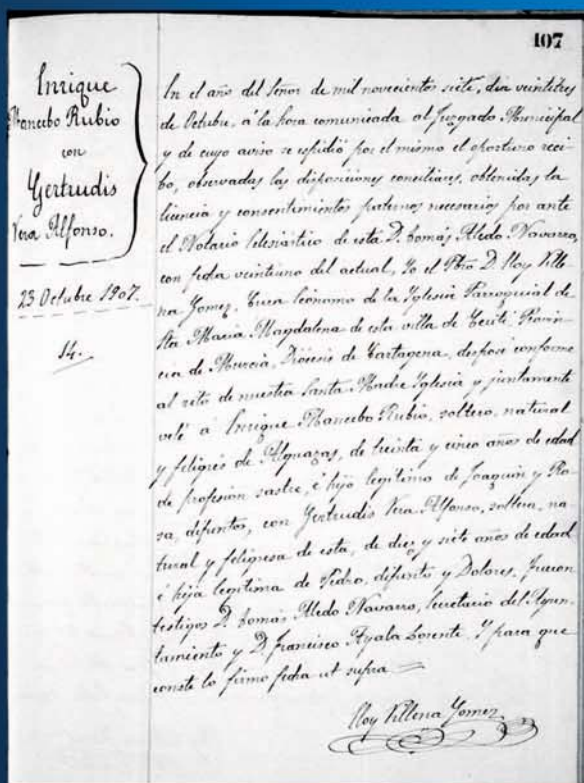 107
Enrique
Mancebo Rubio
con
Gertrudis
Vera Alfonso.
23 Octubre 1907.
14.
En el año del Señor de mil novecientos siete, dia veintitres
de Octubre, á la hora comunicada al Juzgado Municipal
y de cuyo aviso se espidió por el mismo el oportuno reci-
bo, observadas las disposiciones conciliares, obtenidas la
licencia y consentimientos paternos necesarios por ante
el Notario Eclesiástico de esta D. Tomás Aledo Navarro,
con fecha veintiuno del actual, Yo el Pbro. D. Eloy Ville-
na Gomez, Cura Ecónomo de la Yglesia Parroquial de
Sta. Maria Magdalena de esta villa de Ceutí, Provin-
cia de Murcia, Diócesis de Cartagena, desposé conforme
al rito de nuestra Santa Madre Yglesia y juntamente
velé á Enrique Mancebo Rubio, soltero, natural
y feligrés de Alguazas, de treinta y cinco años de edad
de profesion sastre, é hijo legítimo de Joaquin y Ro-
sa, difuntos, con Gertrudis Vera Alfonso, soltera, na-
tural y feligresa de esta, de diez y siete años de edad
é hija legítima de Pedro, difunto y Dolores. Fueron
testigos D. Tomás Aledo Navarro, Secretario del Ayun-
tamiento y D. Francisco Ayala Lorente. Y para que
conste lo firmo fecha ut supra =
Eloy Villena Gomez